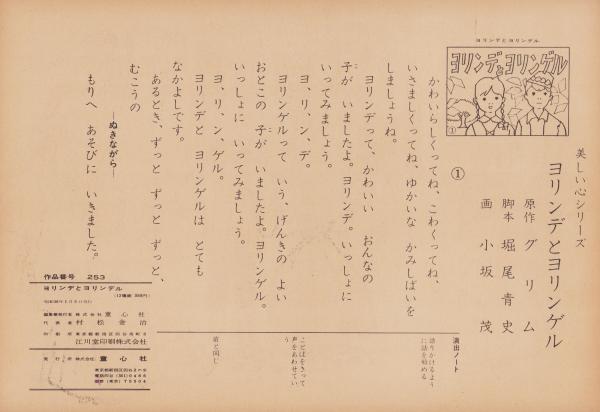 ヨリンデとヨリンデル
ヨリンデとヨリンゲル
①
美しい心シリーズ
ヨリンデとヨリンゲル
原作 グリム
脚本 堀尾青史
画 小坂茂
①
かわいらしくってね、こわくってね、
いさましくってね、ゆかいな かみしばいを
しましょうね。
ヨリンデって、かわいい おんなの
子が いましたよ。ヨリンデ。いっしょに
いってみましょう。
ヨ、リ、ン、デ。
ヨリンゲルって いう、げんきの よい
おとこの 子が いましたよ。ヨリンゲル。
いっしょに いってみましょう。
ヨ、リ、ン、ゲル。
ヨリンデと ヨリンゲルは とても
なかよしです。
あるとき、ずっと ずっと ずっと、
むこうの
―ぬきながら―
もりへ あそびに いきました。
演出ノート
語りかけるよう
に話を始める
ことばをきって
声をあわせてい
う
前と同じ
作品番号 253
ヨリンデとヨリンデル
株式会社 童心社
代表者 村松金治
江川堂印刷株式会社
発行所 株式会社 童心社